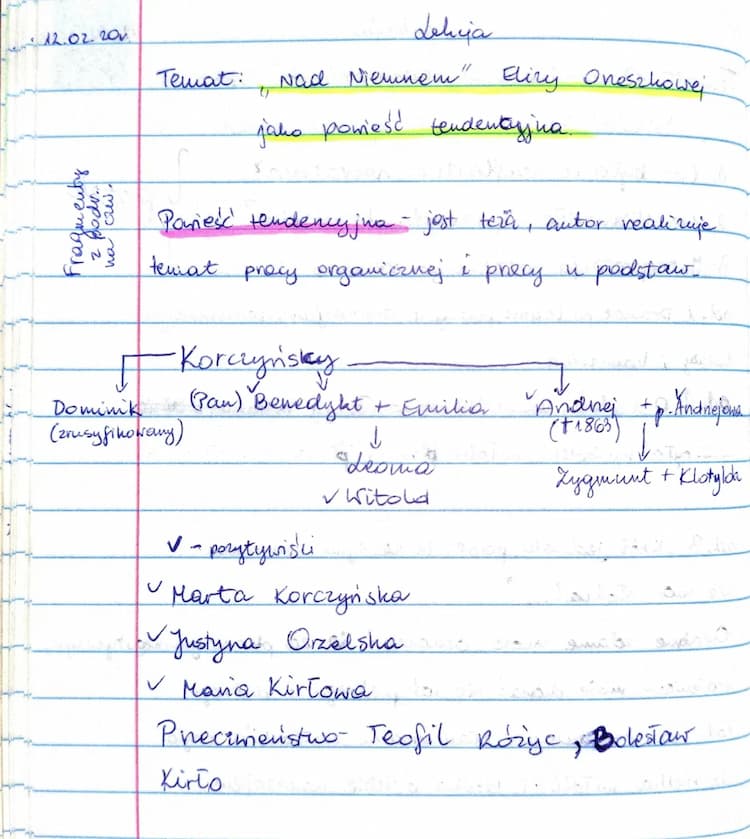 12.02.20r.
Lekcja
Temat: „Nad Niemnem" Elizy Orzeszkowej
jako powieść tendencyjna.
Fragmenty
z Podr.
na czw.
Powieść tendencyjna - jest tezą, autor realizuje
temat pracy organicznej i pracy u podstaw.
Korczyńscy
Dominik (Pan) ✓ Benedykt + Emilia ✓ Andrzej + p. Andrzejowa
(zrusyfikowany) (†1863)
Leonia Zygmunt + Klotylda
✓ Witold
✓ - pozytywiści
✓ Marta Korczyńska
✓ Justyna Orzelska
✓ Maria Kirłowa
Przeciwieństwo - Teofil Różyc, Bolesław
Kirło